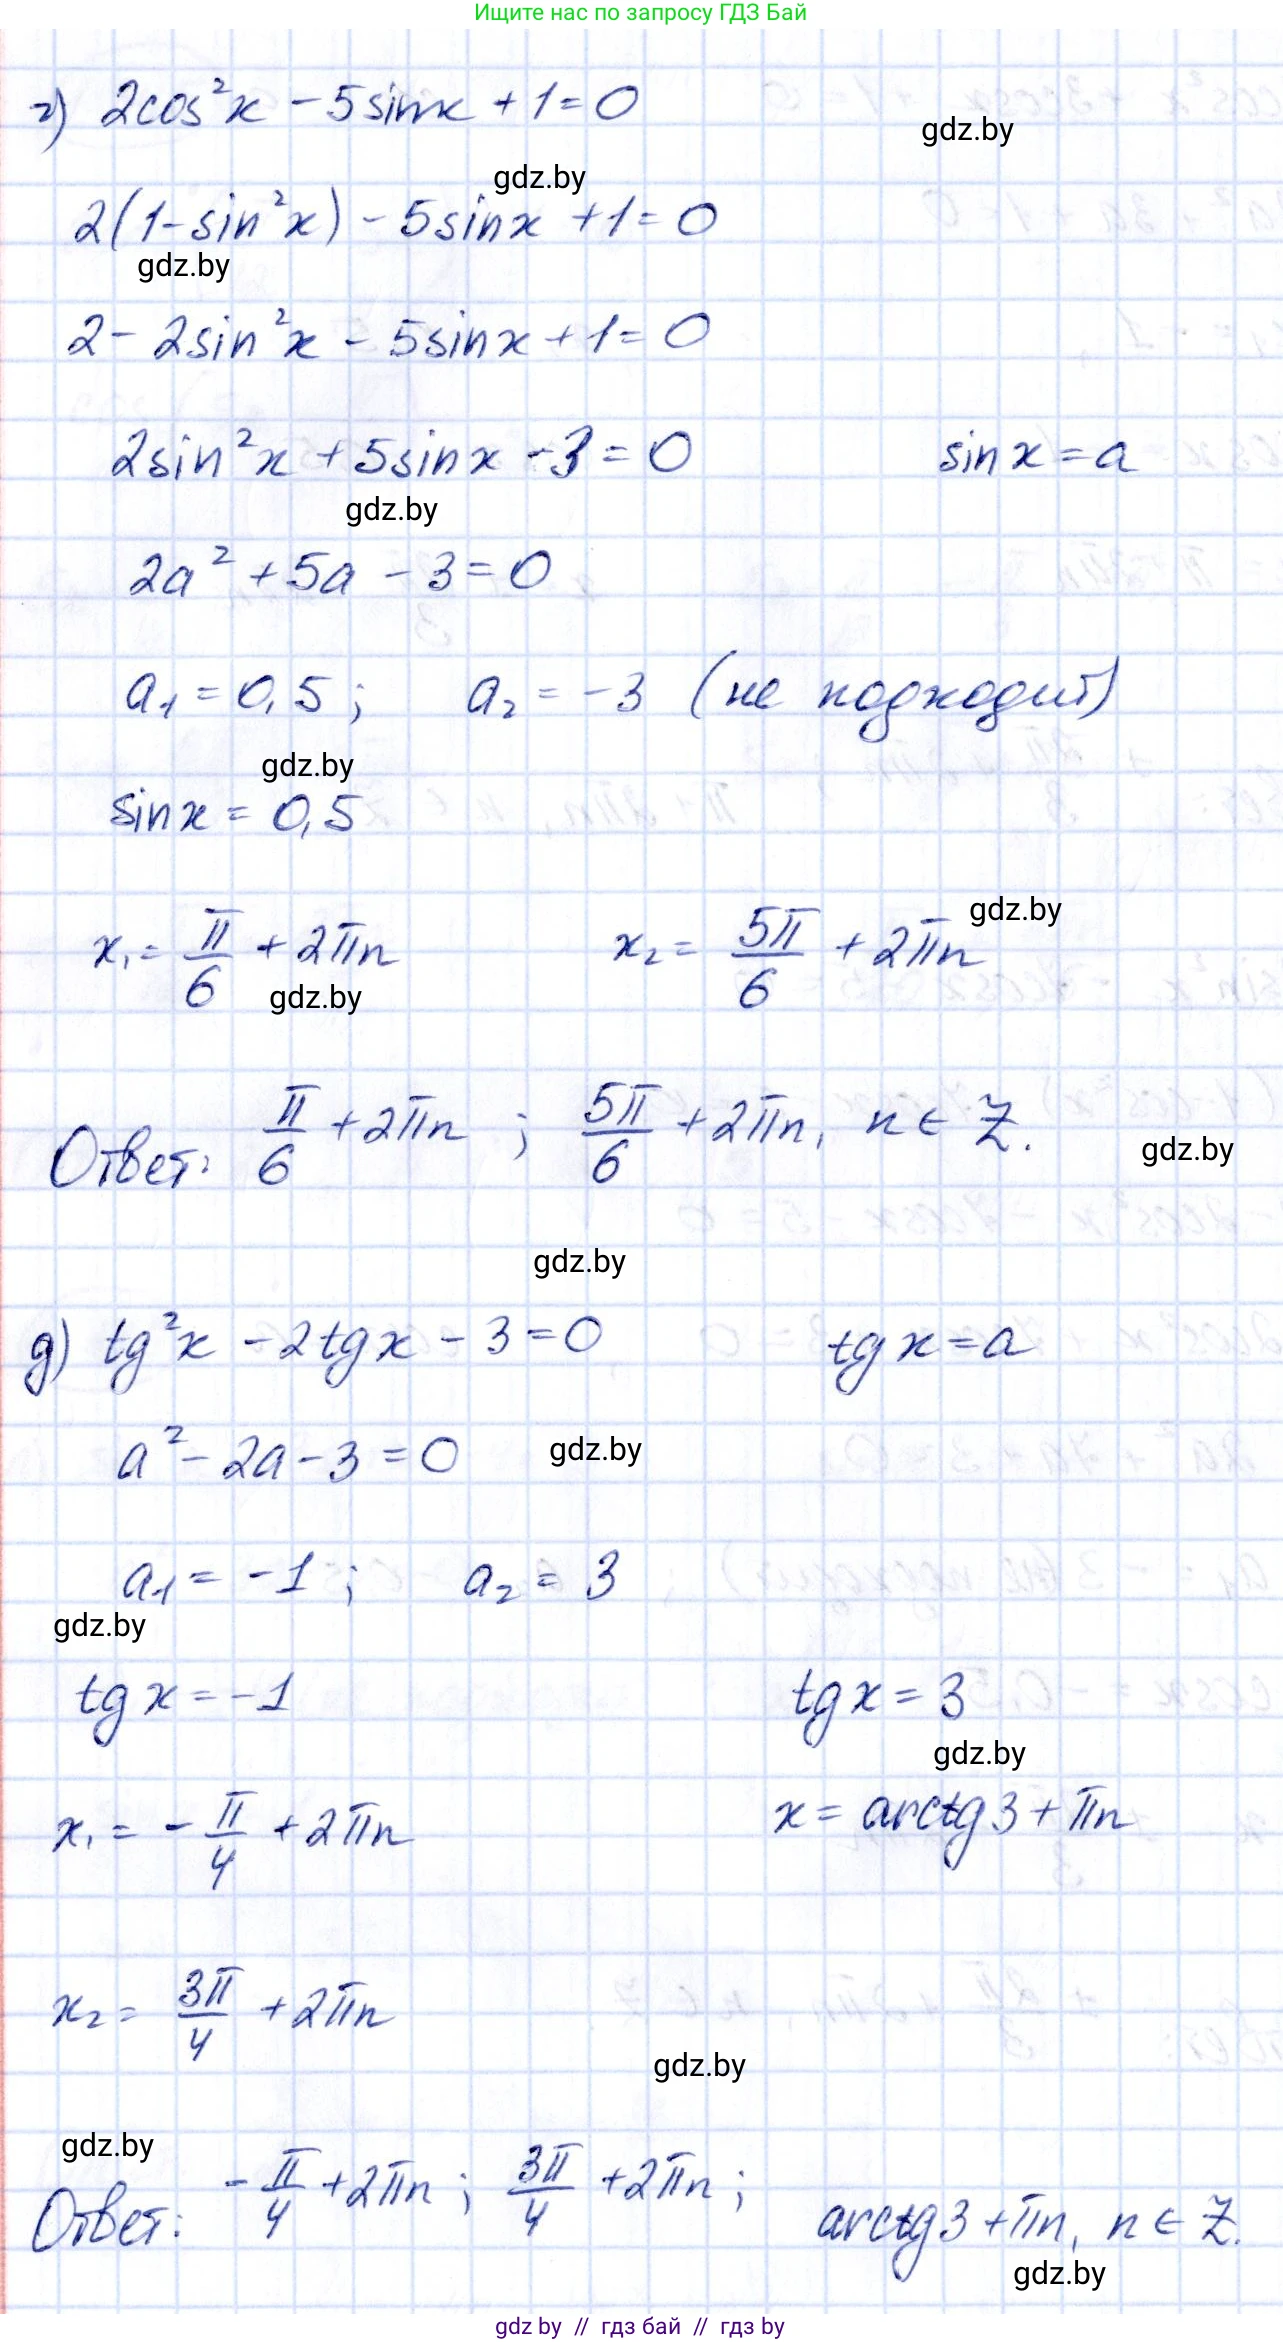 Ищите нас по запросу ГДЗ Бай
г) 2cos²x - 5sinx + 1 = 0
gdz.by
gdz.by
2(1-sin²x) - 5sinx + 1 = 0
gdz.by
2 - 2sin²x - 5sinx + 1 = 0
2sin²x + 5sinx - 3 = 0 sinx = a
gdz.by
2a² + 5a - 3 = 0
a₁ = 0,5; a₂ = -3 (не подходит)
gdz.by
sinx = 0,5
gdz.by
x₁ = π/6 + 2πn x₂ = 5π/6 + 2πn
gdz.by
Ответ: π/6 + 2πn ; 5π/6 + 2πn, n ∈ Z.
gdz.by
gdz.by
д) tg²x - 2tgx - 3 = 0 tgx = a
a² - 2a - 3 = 0
gdz.by
a₁ = -1; a₂ = 3
gdz.by
tgx = -1 tgx = 3
gdz.by
x₁ = -π/4 + 2πn x = arctg3 + πn
x₂ = 3π/4 + 2πn
gdz.by
gdz.by
Ответ: -π/4 + 2πn ; 3π/4 + 2πn ; arctg3 + πn, n ∈ Z.
gdz.by
gdz by // гдз бай // гдз by